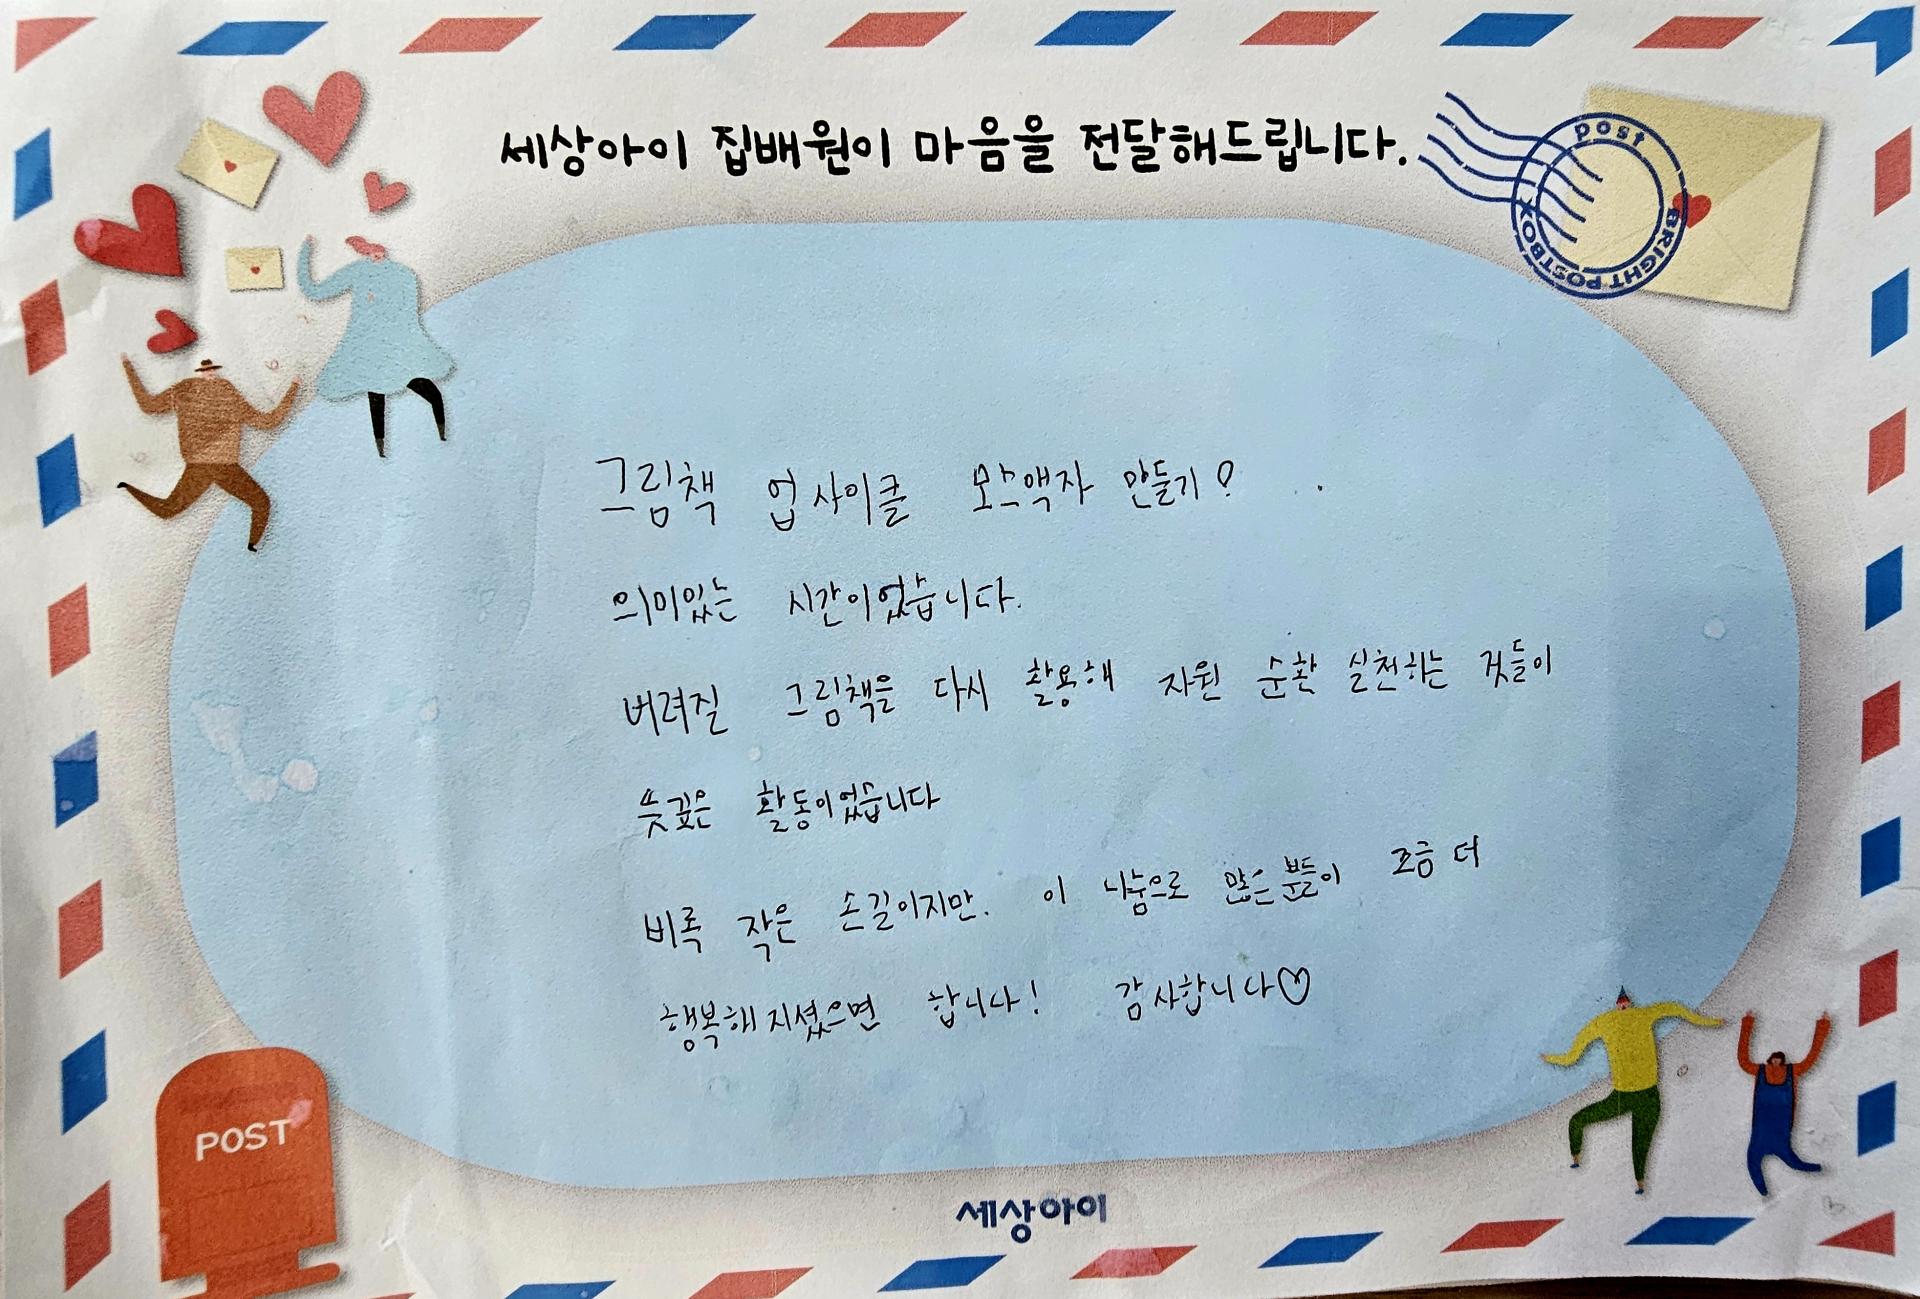 세상아이 집배원이 마음을 전달해드립니다.
post
BRIGHT POSTBOX
그림책 업사이클 모스액자 만들기?
의미있는 시간이었습니다.
버려질 그림책을 다시 활용해 자원 순환 실천하는 것들이
뜻깊은 활동이었습니다
비록 작은 손길이지만. 이 나눔으로 많은 분들이 조금 더
행복해지셨으면 합니다! 감사합니다♡
POST
세상아이